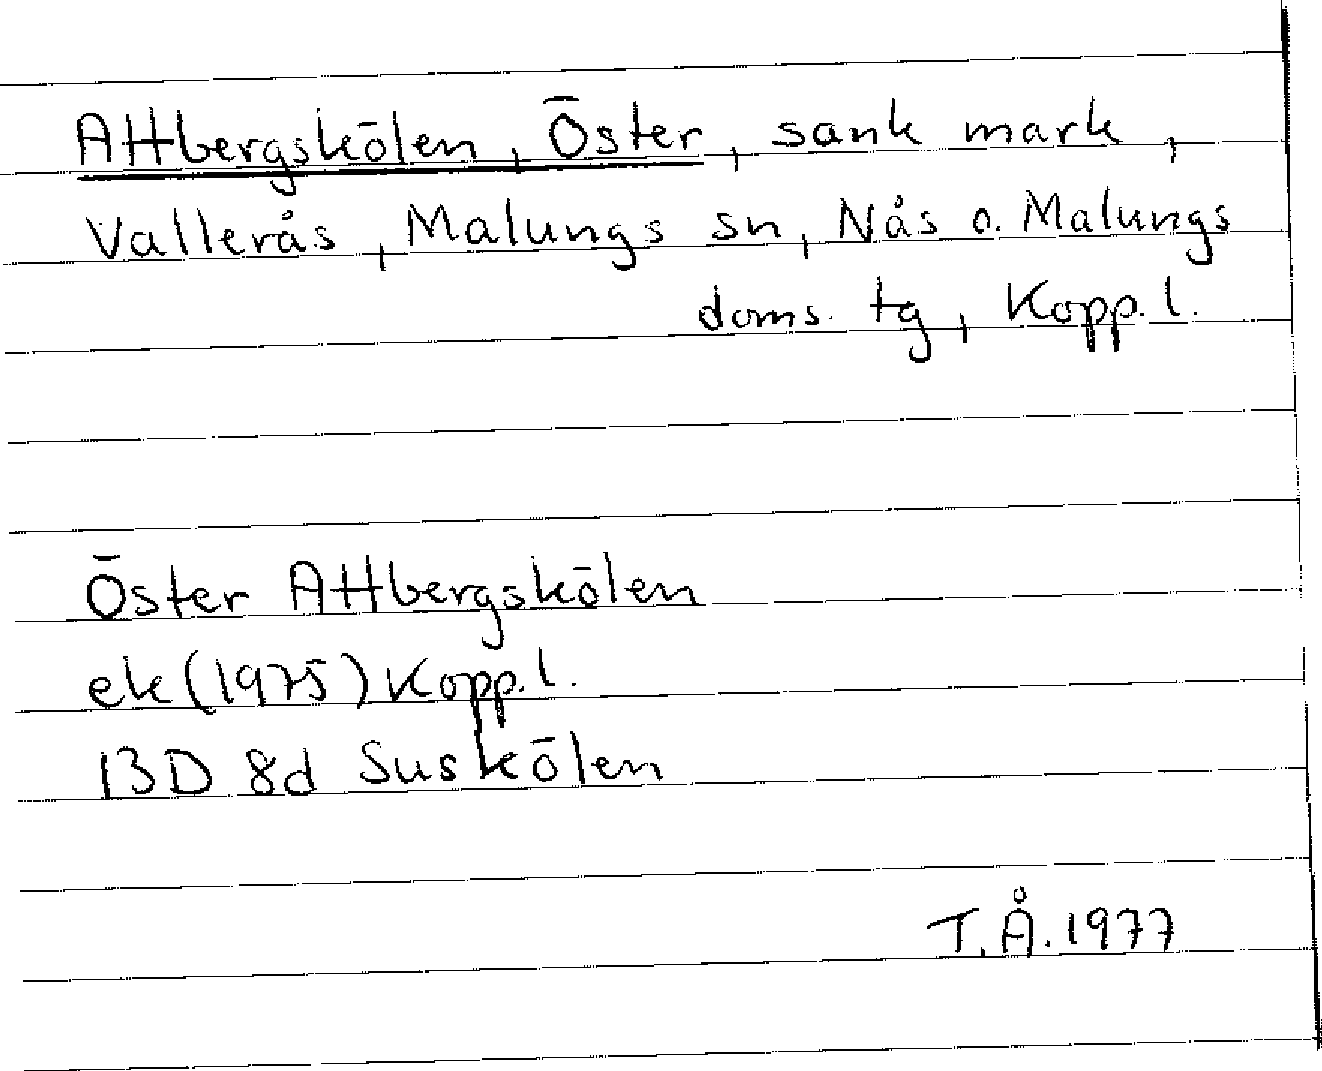 Attbergskölen, Öster, sank mark,
Vallerås, Malungs sn, Nås o. Malungs
doms. tg, Kopp. l.
Öster Attbergskölen
ek (1975) Kopp. l.
13D 8d Suskölen
T.Å. 1977